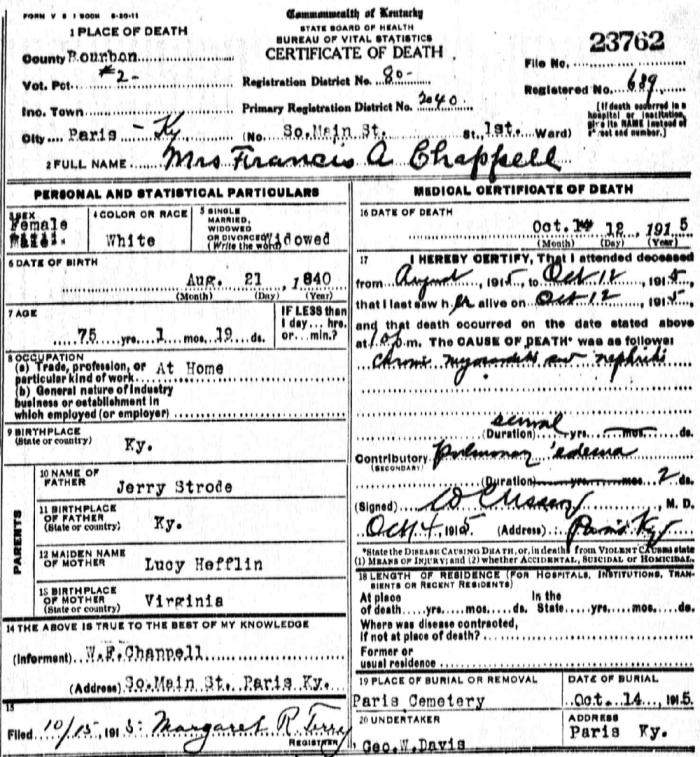 FORM V S 1 500M 6-20-11
Commonwealth of Kentucky
STATE BOARD OF HEALTH
BUREAU OF VITAL STATISTICS
CERTIFICATE OF DEATH
1 PLACE OF DEATH
County Bourbon
Vot. Pct. #2-
Inc. Town
City Paris - Ky
Registration District No. 80-
Primary Registration District No. 2040
(No. So.Main St. St. 1st. Ward)
File No. 23762
Registered No. 689
[If death occurred in a hospital or institution, give its NAME instead of street and number.]
2 FULL NAME Mrs Francis A Chappell
PERSONAL AND STATISTICAL PARTICULARS
3 SEX
Female
4 COLOR OR RACE
White
5 SINGLE
MARRIED,
WIDOWED
OR DIVORCED Widowed
(Write the word)
6 DATE OF BIRTH
Aug. 21 1840
(Month) (Day) (Year)
7 AGE
75 yrs. 1 mos. 19 ds.
IF LESS than
1 day... hrs.
or... min.?
8 OCCUPATION
(a) Trade, profession, or At Home
particular kind of work
(b) General nature of industry
business or establishment in
which employed (or employer)
9 BIRTHPLACE
(State or country) Ky.
PARENTS
10 NAME OF
FATHER Jerry Strode
11 BIRTHPLACE
OF FATHER
(State or country) Ky.
12 MAIDEN NAME
OF MOTHER Lucy Hefflin
13 BIRTHPLACE
OF MOTHER
(State or country) Virginia
14 THE ABOVE IS TRUE TO THE BEST OF MY KNOWLEDGE
(Informent) W.F.Chappell
(Address) So.Main St. Paris Ky.
15
Filed 10/15, 1915 Margaret R. Terry
REGISTRER
MEDICAL CERTIFICATE OF DEATH
16 DATE OF DEATH
Oct. 12, 1915
(Month) (Day) (Year)
17 I HEREBY CERTIFY, That I attended deceased
from August, 1915, to Oct 12, 1915,
that I last saw her alive on Oct 12, 1915,
and that death occurred on the date stated above
at m. The CAUSE OF DEATH* was as follows:
chronic myocarditis and nephritis
several
(Duration) yrs. mos. ds.
Contributory pulmonary edema
(SECONDARY)
(Duration) yrs. mos. 2 ds.
(Signed) M. D.
Oct 4, 1915. (Address) Paris Ky
*State the DISEASE CAUSING DEATH, or, in deaths from VIOLENT CAUSES state
(1) MEANS OF INJURY; and (2) whether ACCIDENTAL, SUICIDAL or HOMICIDAL.
18 LENGTH OF RESIDENCE (FOR HOSPITALS, INSTITUTIONS, TRANSIENTS OR RECENT RESIDENTS)
At place In the
of death yrs. mos. ds. State yrs. mos. ds.
Where was disease contracted,
if not at place of death?
Former or
usual residence
19 PLACE OF BURIAL OR REMOVAL
Paris Cemetery
DATE OF BURIAL
Oct. 14, 1915
20 UNDERTAKER
Geo.W.Davis
ADDRESS
Paris Ky.